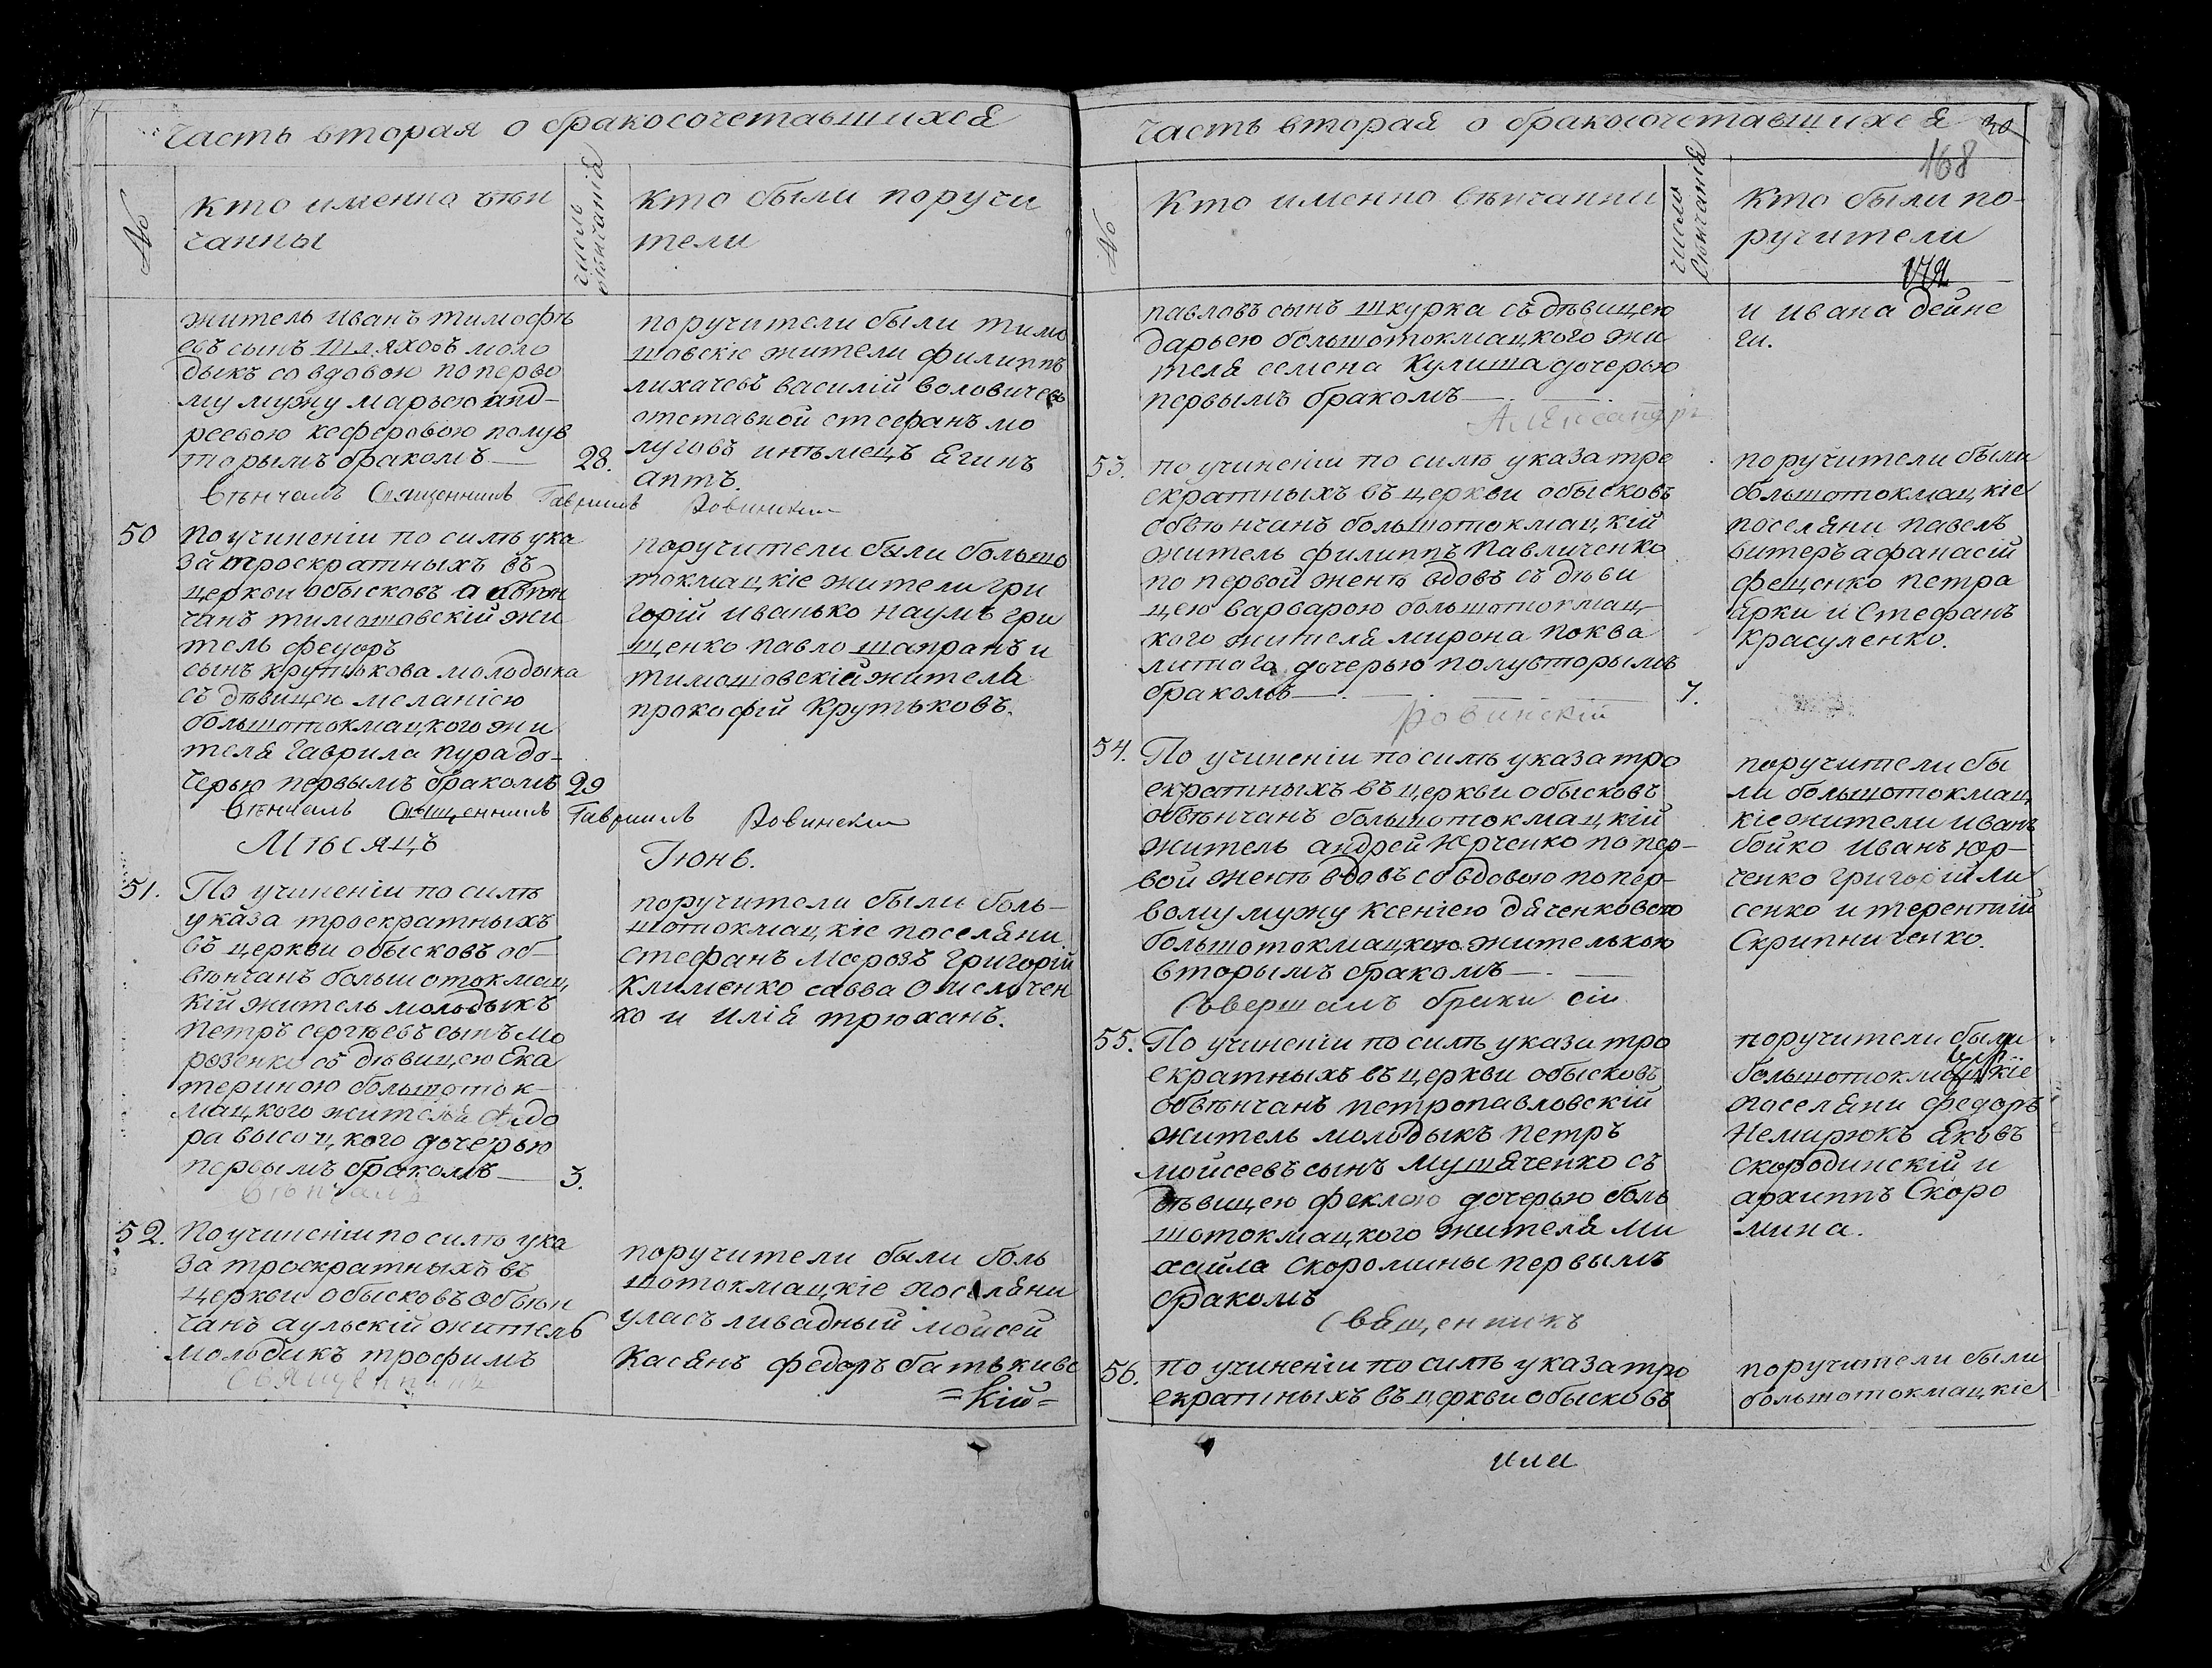 Часть вторая о бракосочетавшихся
№
кто именно вѣн
чанны
число
вѣнчанія
кто были поручи
тели
житель иванъ тимофѣ
евъ сынъ шляховъ моло
дыкъ со вдовою по перво
му мужу марьею анд-
реевою кеферовою полув
торымъ бракомъ — 28.
поручители были тимо
шовскіе жители филиппъ
лихачевъ василій воловичевъ
отставной стефанъ мо
луговъ инѣмецъ егинъ
аптъ.
Вѣнчалъ Священникъ Гавріилъ Ровинскій
50 по учиненіи по силѣ ука
за троекратныхъ въ
церкви обысковъ обвѣн
чанъ тимошовскій жи
тель федоръ
сынъ крутькова молодыка
съ дѣвицею меланіею
большотокмацкого жи
теля гаврила пура до-
черью первымъ бракомъ 29
поручители были большо
токмацкіе жители гри
горій иванько наумъ гри
щенко павло шапранъ и
тимошовскій житель
прокофій крутьковъ.
Вѣнчалъ Священникъ Гавріилъ Ровинскій
Мѣсяцъ Іюнь.
51. По учиненіи по силѣ
указа троекратныхъ
въ церкви обысковъ об-
вѣнчанъ большотокмац
кій житель молодыкъ
петръ сергѣевъ сынъ мо
розенко съ дѣвицею ека
териною большоток-
мацкого жителя
ра высоцкого дочерью
первымъ бракомъ — 3.
поручители были боль-
шотокмацкіе поселяни
стефанъ морозъ григорій
клименко савва
ко и илія трюханъ.
Вѣнчалъ
52. по учиненіи по силѣ ука
за троекратныхъ въ
церкви обысковъ обвѣн
чанъ аульскій житель
молодикъ трофимъ
поручители были боль
шотокмацкіе поселяни
уласъ ливадный моисей
касянъ федоръ батькивс
=кій=
Священникъ
Часть вторая о бракосочетавшихся
168
№
Кто именно вѣнчанни
число
вѣнчанія
кто были по-
ручители
павловъ сынъ шкурка съ дѣвицею
дарьею большотокмацкого жи
теля семена кулиша дочерью
первымъ бракомъ —
и ивана дейне
ги.
Александръ
53. по учиненіи по силѣ указа трое
екратныхъ въ церкви обысковъ
обвѣнчанъ большотокмацкій
житель филиппъ павличенко
по первой женѣ вдовъ съ дѣви
цею варварою большотокмац-
кого жителя мирона поква
литого дочерью полувторымъ
бракомъ — 7.
поручители были
большотокмацкіе
поселяни павелъ
витеръ афанасій
фещенко петра
ярки и стефанъ
красуленко.
Ровинскій
54. По учиненіи по силѣ указа тро
екратныхъ въ церкви обысковъ
обвѣнчанъ большотокмацкій
житель андрей юрченко по пер-
вой женѣ вдовъ со вдовою по пер-
вому мужу ксеніею дяченковою
большотокмацкою жителькою
вторымъ бракомъ —
поручители бы
ли большотокмац
кіе жители иванъ
бойко иванъ юр-
ченко григорій ли
сенко и терентій
скрипниченко.
Совершалъ браки сіи
55. По учиненіи по силѣ указа тро
екратныхъ въ церкви обысковъ
обвѣнчанъ петропавловскій
житель молодыкъ петръ
моисеевъ сынъ мушяченко съ
дѣвицею феклою дочерью боль
шотокмацкого жителя ми
хайла скоромины первымъ
бракомъ
поручители были
большотокмацкіе
поселяни федоръ
немирюкъ яковъ
скородинскій и
архиппъ скоро
мина.
Священникъ
56. по учиненіи по силѣ указа тро
екратныхъ въ церкви обысковъ
поручители были
большотокмацкіе